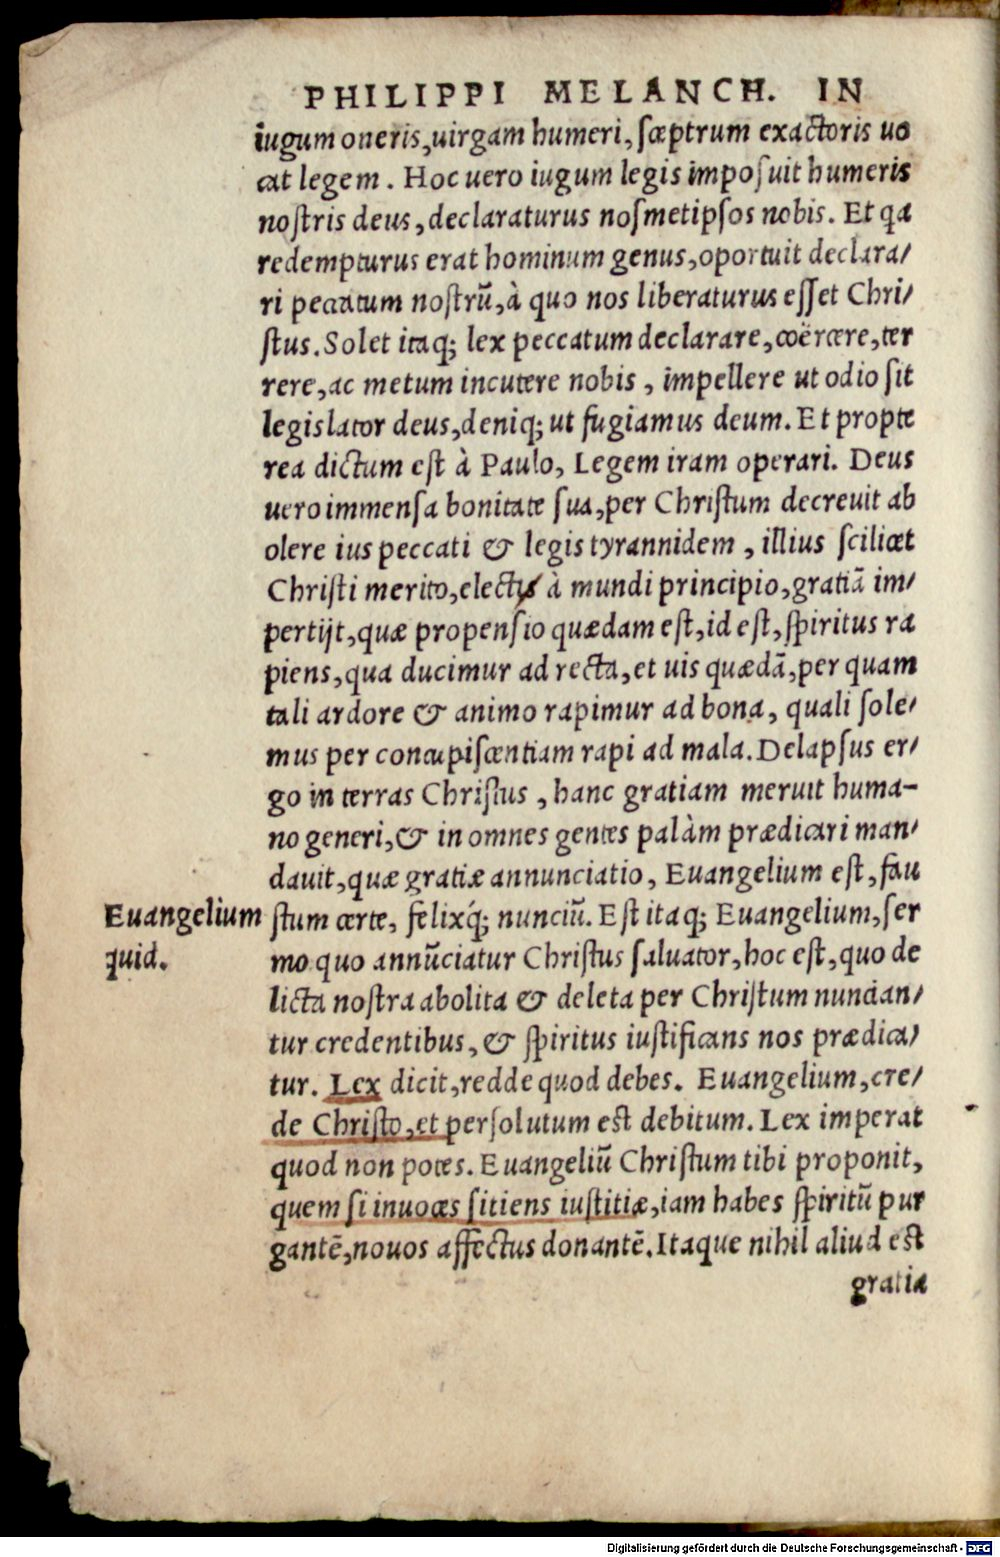 PHILIPPI MELANCH. IN
iugum oneris,uirgam humeri, sceptrum exactoris uo
cat legem. Hoc uero iugum legis imposuit humeris
nostris deus, declaraturus nosmetipsos nobis. Et qa
redempturus erat hominum genus,oportuit declara/
ri peccatum nostrũ,à quo nos liberaturus esset Chri/
stus. Solet itaq; lex peccatum declarare, coërcere, ter
rere,ac metum incutere nobis, impellere ut odio sit
legislator deus,deniq; ut fugiamus deum. Et propte
rea dictum est à Paulo, Legem iram operari. Deus
uero immensa bonitate sua,per Christum decreuit ab
olere ius peccati & legis tyrannidem, illius scilicet
Christi merito,electis à mundi principio,gratiã im/
pertijt,quæ propensio quædam est,id est, spiritus ra
piens,qua ducimur ad recta,et uis quædã,per quam
tali ardore & animo rapimur ad bona, quali sole/
mus per concupiscentiam rapi ad mala. Delapsus er/
go in terras Christus, hanc gratiam meruit huma-
no generi,& in omnes gentes palàm prædicari man/
dauit,quæ gratiæ annunciatio, Euangelium est, fau
Euangelium quid.
stum certe, felixq́; nunciũ. Est itaq; Euangelium,ser
mo quo annũciatur Christus saluator,hoc est,quo de
licta nostra abolita & deleta per Christum nuncian/
tur credentibus, & spiritus iustificans nos prædica/
tur. Lex dicit,redde quod debes. Euangelium,cre/
de Christo,et persolutum est debitum. Lex imperat
quod non potes. Euangeliũ Christum tibi proponit,
quem si inuoces sitiens iustitiæ,iam habes spiritũ pur
gantẽ,nouos affectus donantẽ. Itaque nihil aliud est
gratia
Digitalisierung gefördert durch die Deutsche Forschungsgemeinschaft - DFG